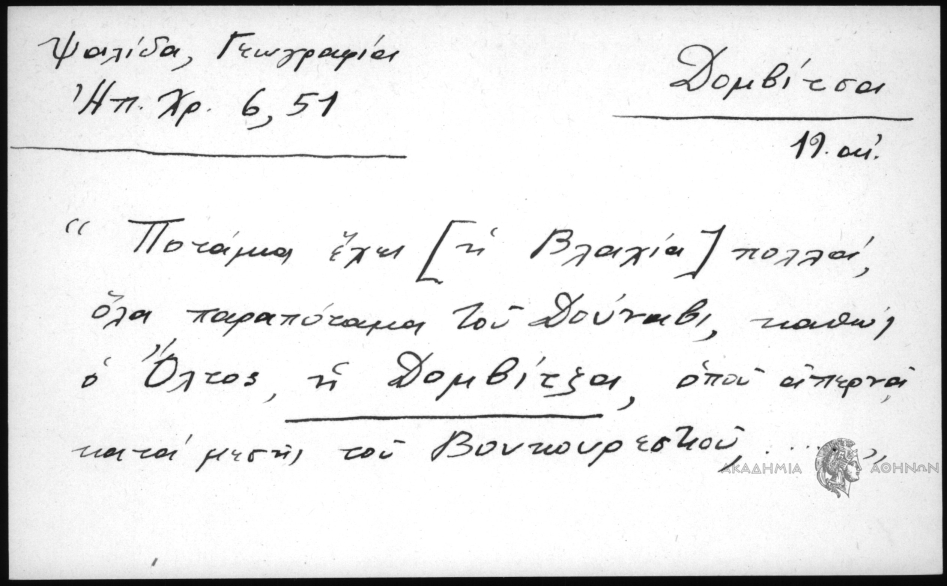 Ψαλίδα, Γεωγραφία
Ἠπ. Χρ. 6, 51
Δομβίτσα
19. αἰ.
“ Ποτάμια ἔχει [ἡ Βλαχία] πολλά,
ὅλα παραπόταμα τοῦ Δούναβι, καθὼς
ὁ Ὄλτος, ἡ Δομβίτζα, ὁποῦ ἀπερνᾷ
κατὰ μεσῆς τοῦ Βουκουρεστίου, ....”
ΑΚΑΔΗΜΙΑ ΑΘΗΝΩΝ